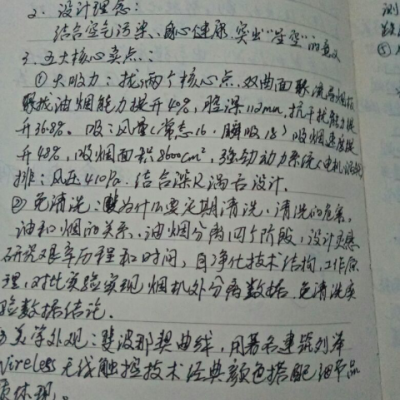 2、设计理念：
结合空气污染、身心健康，突出"空空"的意义
3、五大核心卖点：
①大吸力：拢两个核心点，双曲面聚流
拢油烟能力提升40%，腔深112mm，抗干扰能力提
升36.8%。吸：风量（常态16，瞬吸18）吸烟速度提
升48%，吸烟面积8600cm²，强劲动力系统（电机
排：风压410Pa，结合深尺涡舌设计。
②免清洗：为什么要定期清洗，清洗的危害，
油和烟的关系，油烟分离四个阶段，设计灵感
研究艰辛历程和时间，自净化技术结构，工作原
理，对比实验实现烟机外分离数据，免清洗实
验数据结论。
③美学外观：斐波那契曲线，用著名建筑列举
Wireless无线触控技术 经典颜色搭配 细节品
质体现。
测